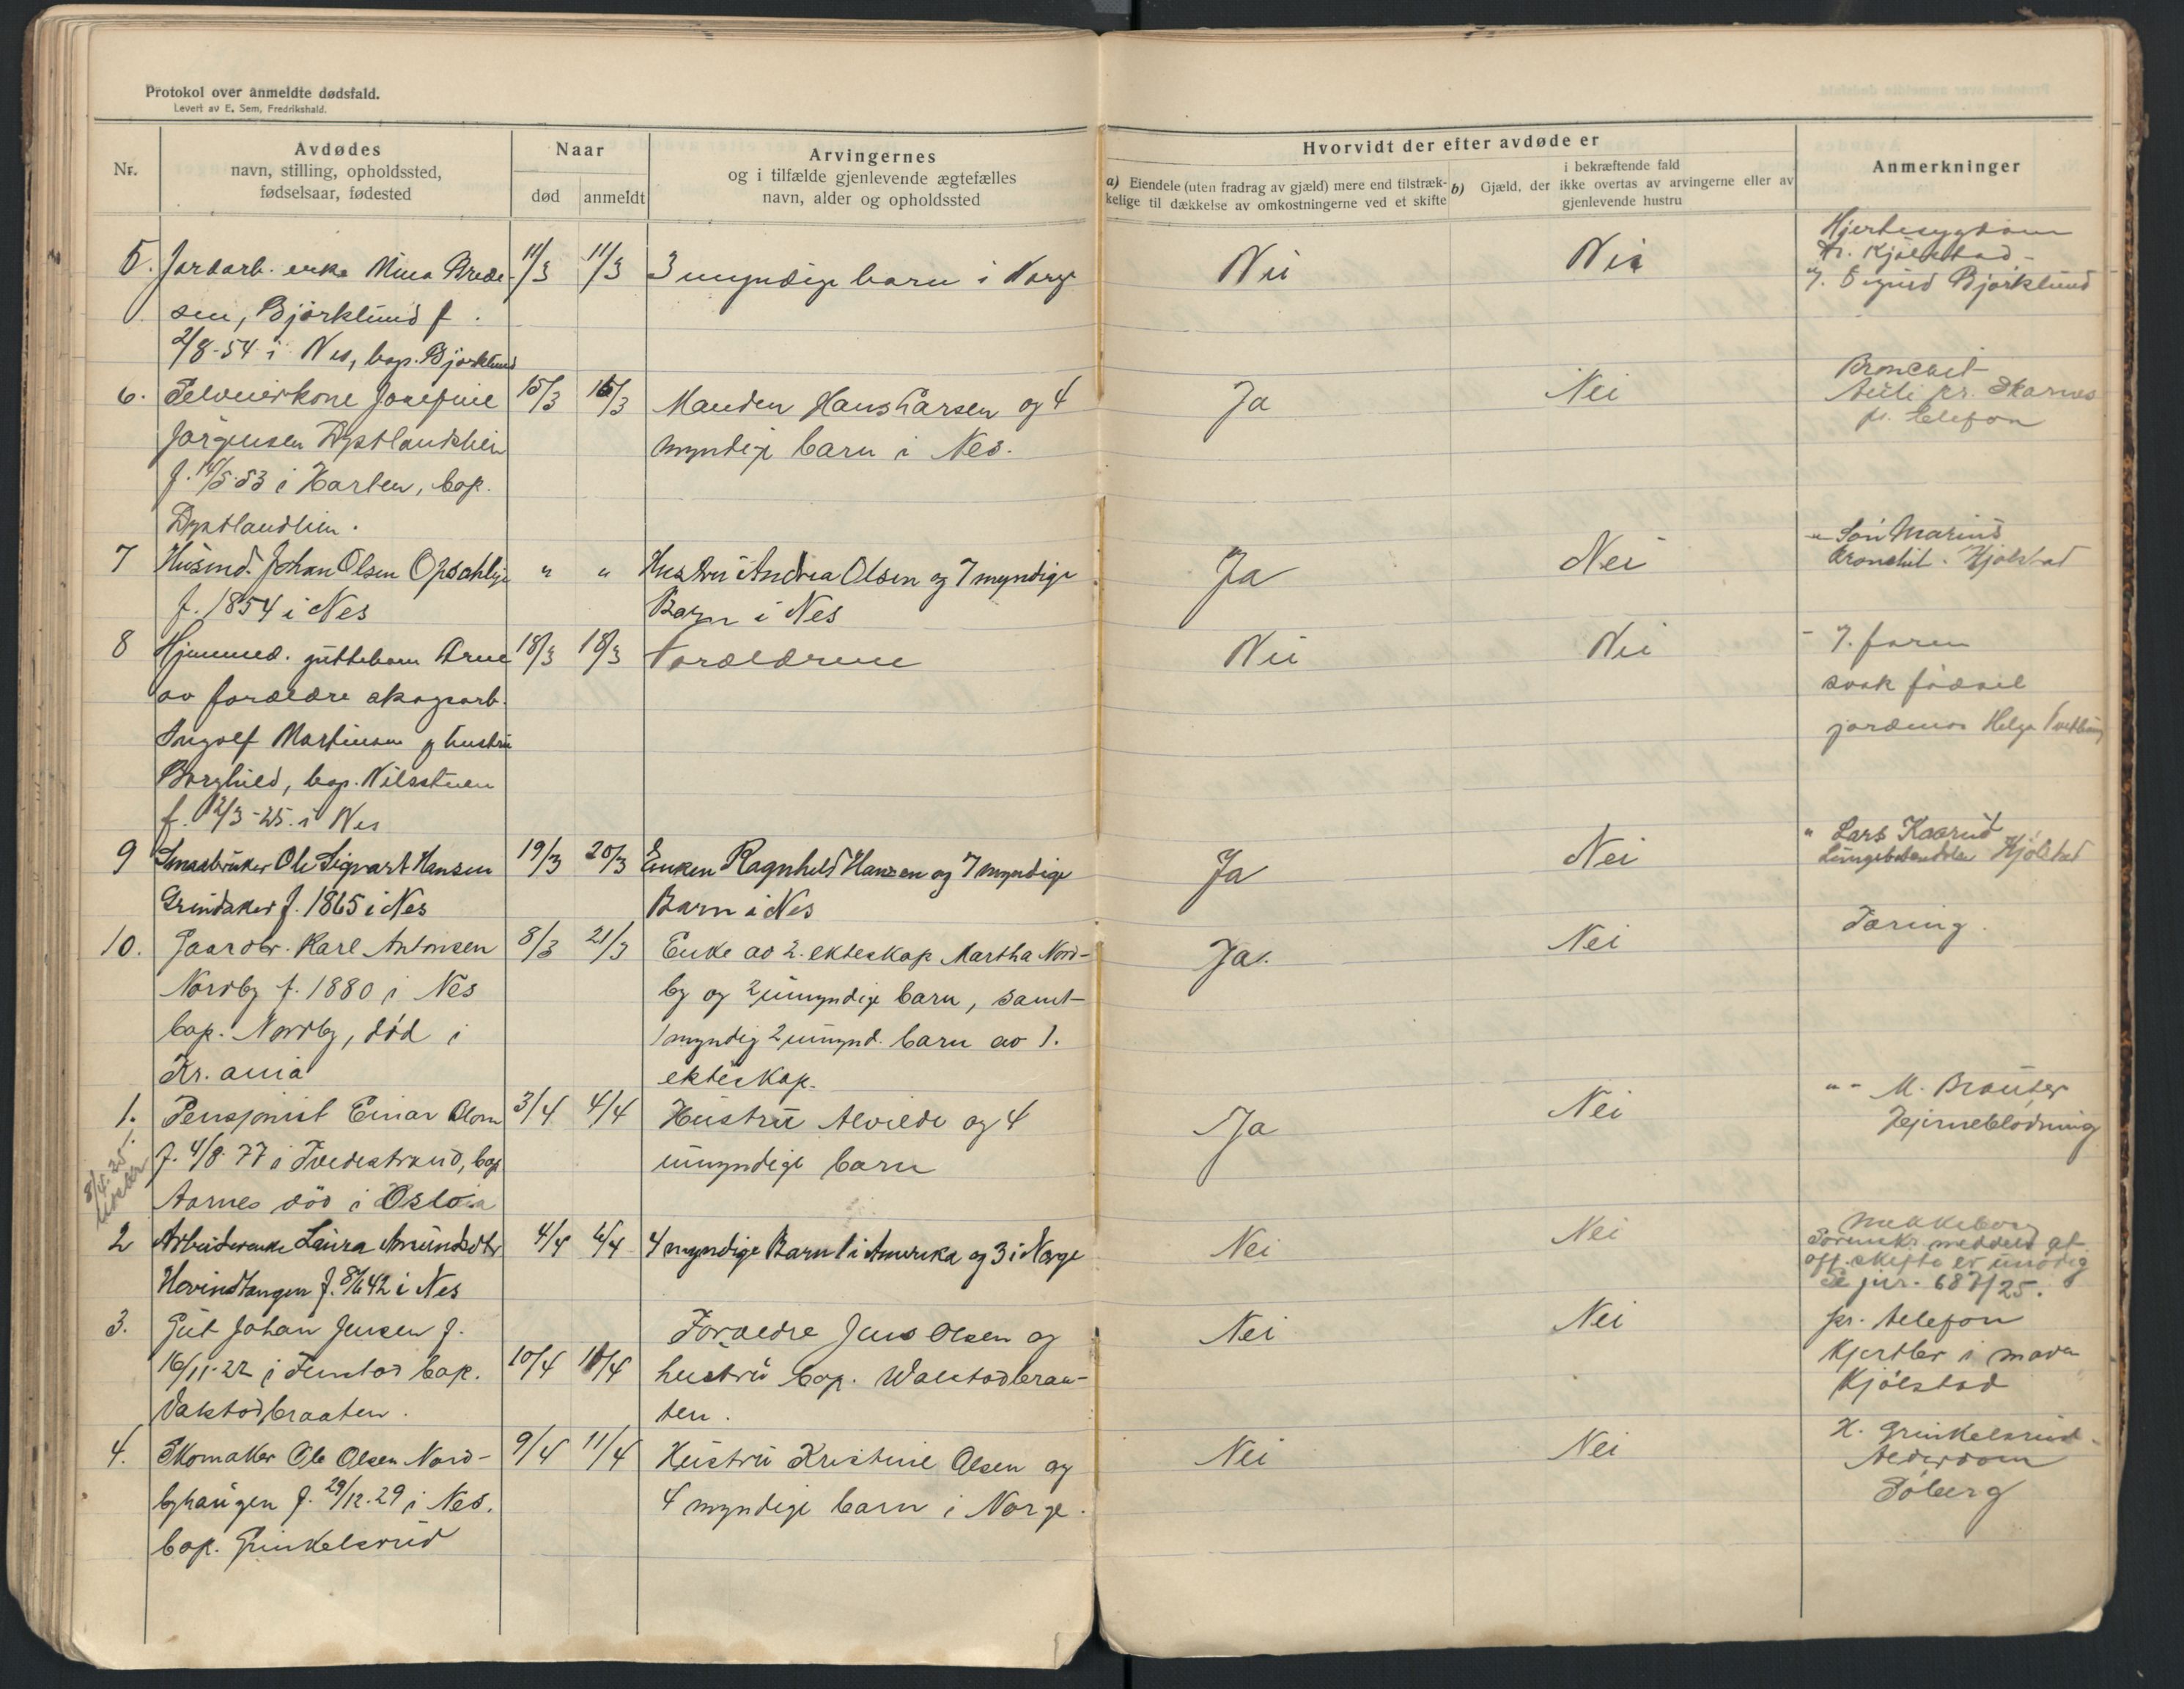 Protokol over anmeldte dødsfald.
Levert av E. Sem, Fredrikshald.
Nr.
Avdødes
navn, stilling, opholdssted,
fødselsaar, fødested
Naar
død
anmeldt
Arvingernes
og i tilfælde gjenlevende ægtefælles
navn, alder og opholdssted
Hvorvidt der efter avdøde er
a) Eiendele (uten fradrag av gjæld) mere end tilstræk-
kelige til dækkelse av omkostningerne ved et skifte
i bekræftende fald
b) Gjæld, der ikke overtas av arvingerne eller av
gjenlevende hustru
Anmerkninger
5. Jordarb. enke Mina Brede- 11/3 11/3 3 myndige barn i Norge Nei Nei Hjertesygdom
sen, Björklund f. Kr. Kjølstad -
2/8-54 i Nes, bop. Björklund J. Sigurd Björklund
6. Selveierkone Josefine 15/3 16/3 Manden Hans Larsen og 4 Ja Nei Bronchit
Jørgensen Dystlandshien myndige barn i Nes. pr. Skarnes
f. 14/5.53 i Hasten, bop. pr. telefon
Dystlandhien.
7 Husmd. Johan Olsen Opsahlye " " Hustru Andrea Olsen og 7 myndige Ja Nei " Søn Marius
f. 1854 i Nes Barn i Nes Bronchit. Kjølstad
8 Hjemmed. guttebarn Arne 18/3 18/3 Forældrene Nei Nei - J. faren
av forældre skogsarb. svak fødsel
Ingolf Martinsen og hustru jordmor Helga
Borghild, bop. Nilsstuen
f. 12/3-25. i Nes
9 Smaabruker Ole Sigvart Hansen 19/3 20/3 Enken Ragnhild Hansen og 7 myndige Ja Nei " Lars Kaarud
Grindaker f. 1865 i Nes Barn i Nes Lungebetændelse Kjölstad
10. Gaardbr. Karl Antonsen 8/3 21/3 Enke av 2. ekteskap Martha Nord- Ja. Nei Tæring.
Nordby f. 1880 i Nes by og 2 umyndige barn, samt
bop. Nordby, död i 1 myndig 2 umynd. barn av 1.
Kr.ania ekteskap.
1. Pensjonist Einar Blom 3/4 4/4 Hustru Alvilde og 4 Ja Nei " - M. Brauter
f. 4/8 77 i Tvedestrand, bop. umyndige barn Hjerneblödning
Aarnes död i Oslo
8/4.25.
2 Arbeiderenke Laura Amundsdtr 4/4 6/4 4 myndige Barn 1 i Amerika og 3 i Norge Nei Nei
Hovindtangen f. 8/6 42 i Nes Sorenskr. meddeld at
off. skifte er unödig
Se jur. 687/25.
3. Gut Johan Jensen f. Forældre Jens Olsen og Nei Nei pr. telefon
16/11-22 i bop. 10/4 11/4 hustru bop. Valstadbraa- Kjertler i mave
Valstadbraaten. ten. Kjölstad
4. Skomaker Ole Olsen Nord- 9/4 11/4 Hustru Kristine Olsen og Nei Nei K. Grinkelsrud
byhaugen f. 29/12.29 i Nes. 4 myndige barn i Norge. Alderdom
bop. Grinkelsrud Söberg